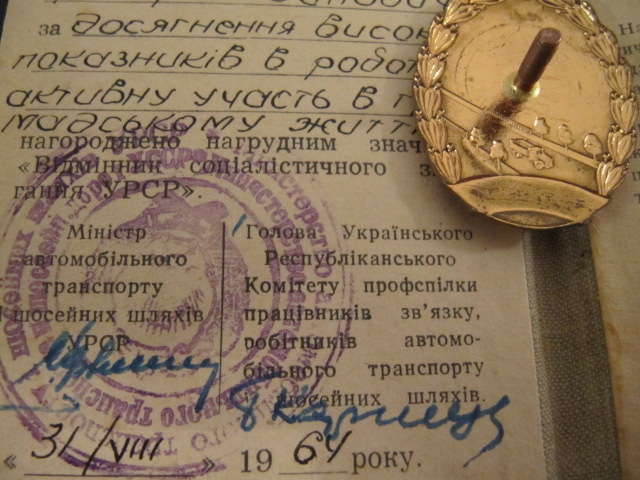 за досягнення висок
показників в робот
активну участь в г
мадському житт
нагороджено нагрудним знач
«Відмінник соціалістичного з
гання УРСР».
Міністр
автомобільного
транспорту
і шосейних шляхів
УРСР
Голова Українського
Республіканського
Комітету профспілки
працівників зв'язку,
робітників автомо-
більного транспорту
і шосейних шляхів.
« 31/VIII » 1964 року.